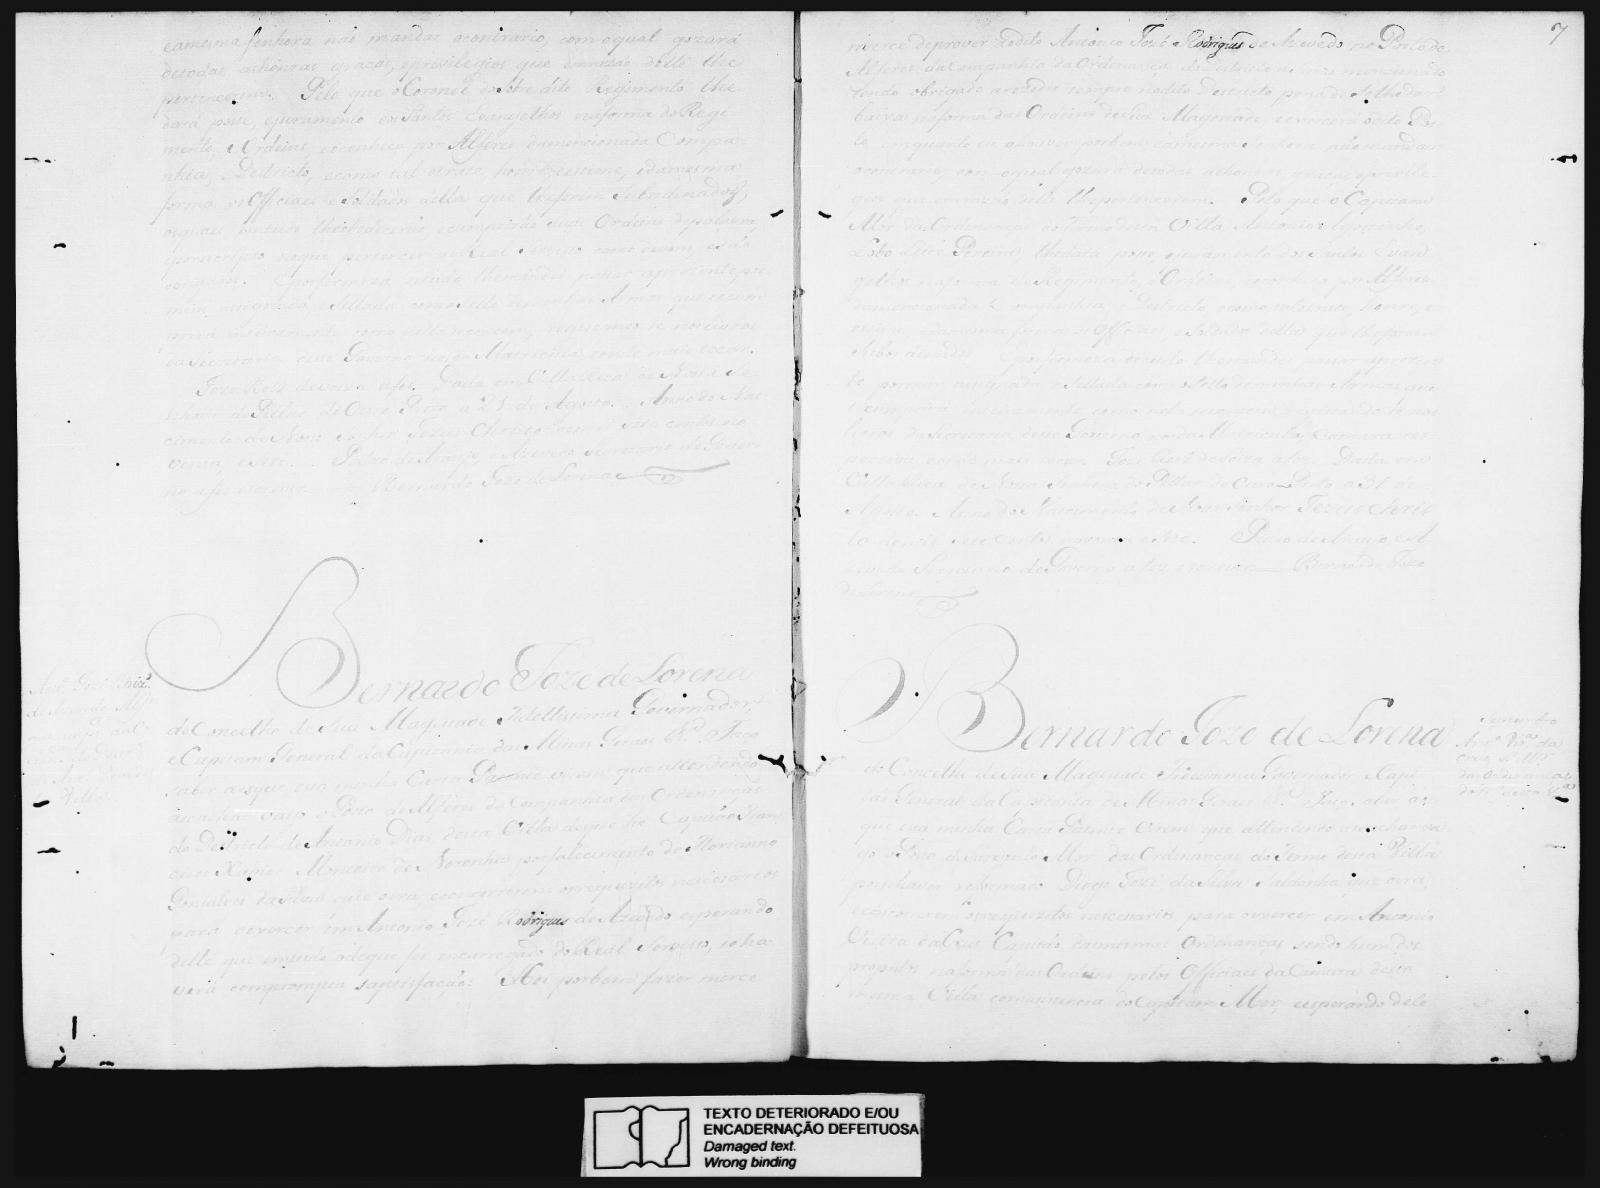 eamesma Senhora não mandar ocontrario, com oqual gozará
detodas ashonras graças, eprivilegios que emrazão delle lhe
pertencerem. Pelo que o Coronel do sobredito Regimento lhe
dará posse, ejuramento dos Santos Evangelhos naforma do Regi-
mento, e Ordens, econheça por Alferes damencionada Compa-
nhia, e Destricto, ecomo tal otrate honre, eestime, edamesma
forma os Officiaes e Soldados della que lheforem subordinados,
oquaes emtudo lheobedecerão, ecumprirão suas Ordens depalavra,
eporescripto noque pertencer aoReal serviço como devem, esão
obrigados. Eporfirmeza detudo lhemandei passar apresente por
mim assignada, e Sellada como Sello deminhas Armas quesecum-
prirá inteiramente como nella secontem, registandose nosLivros
da Secretaria deste Governo, nosda Matricula eonde mais tocar.
Jozé Reis de afes. Dada em Villa Rica de Nossa Se-
nhora do Pillar do Ouro Preto a 21 de Agosto. Anno do Nas-
cimento de Nosso Senhor Jezus Christo demil sete centos no-
venta, esete. Pedro de Araujo, e Azevedo Secretario do Gover-
no afes escrever. Bernardo Jozé de Lorena
Bernardo Joze de Lorena
do Concelho de Sua Magestade Fidellissima Governador,
e Capitam General da Capitania das Minas Geraes &ª. Faço
saber aosque esta minha Carta Patente virem que attendendo
aseachar vago o Posto de Alferes da Companhia das Ordenanças
do Destricto de Antonio Dias desta Villa deque he Capitão Fran-
cisco Xavier Monteiro de Noronha porfalecimento de Florianno
Gonsalves da Silva que oera, econcorrerem osrequezitos necessarios
para oexercer em Antonio Jozé Rodrigues de Azevedo eesperando
delle que emtudo odeque for encarregado do Real Serviço, seha-
verá comprompta sapetisfação: Hei porbem fazer merce
7
merce deprover aodito Antonio Jozé Rodrigues de Azevedo no Posto de
Alferes da Companhia da Ordenança do Destricto
sendo obrigado arezidir sempre nodito Destricto pena de selhedar
baixa naforma das Ordens deSua Magestade, eexercerá odito Pos-
to emquanto eu ohouver porbem eamesma Senhora nãomandar
ocontrario, com oqual gozará detodas ashonras graças eprivile-
gios que emrazão delle lhepertencerem. Pelo que o Capitam
Mor das Ordenanças do Termo desta Villa Antonio Agostinho
Lobo Leite Pereira lhedará posse, ejuramento dosSantos Evan-
gelhos naforma do Regimento, e Ordens, econheça por Alferes
damencionada Companhia, e Destricto ecomo talotrate, honre, e
estime, edamesma forma os Officiaes, e Soldados della que lheforem
subordinados. Eporfirmeza detudo lhemandei passar aprezen-
te pormim assignada e Sellada como Sello deminhas Armas que
secumprirá inteiramente como nella secontem, registandose nos
livros da Secretaria deste Governo, nosda Matricula, Camara
eonde mais tocar. Jozé afes. Dada em
Villa Rica de Nossa Senhora do Pillar do Ouro Preto a 31 de
Agosto. Anno do Nascimento de Nosso Senhor Jezus Chris-
to demil sete centos noventa esete. Pedro de Araujo eA-
zevedo Secretario do Governo afez escrever Bernardo Joze
de Lorena
Bernardo Joze de Lorena
do Concelho de Sua Magestade Fidelissima Governador eCapi-
tão General da Capitania de Minas Geraes &ª. Faço saber aos
que esta minha Carta Patente virem que attendendo aseachar va-
go oPosto de Sargento Mor das Ordenanças do Termo desta Villa
porsehaver reformado Diogo Jozé da Silva Saldanha que oera,
econcorrerem osrequezitos necessarios para oexercer em Antonio
Vieira da Cruz Capitão dasmesmas Ordenanças sendo hum dos
propostos naforma das Ordens pelos Officiaes da Camara desta
mesma Villa comassistencia do Capitam Mor, eesperando delle
TEXTO DETERIORADO E/OU
ENCADERNAÇÃO DEFEITUOSA
Damaged text.
Wrong binding